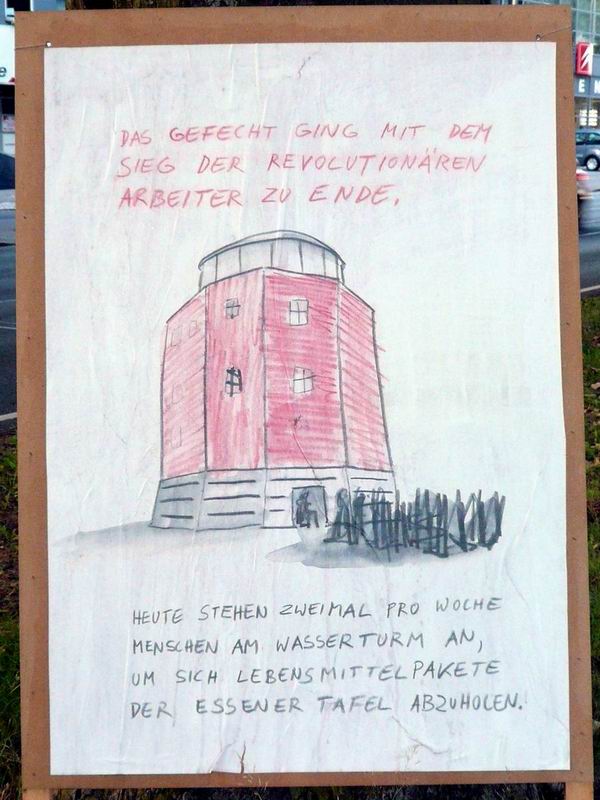 DAS GEFECHT GING MIT DEM
SIEG DER REVOLUTIONÄREN
ARBEITER ZU ENDE.
HEUTE STEHEN ZWEIMAL PRO WOCHE
MENSCHEN AM WASSERTURM AN,
UM SICH LEBENSMITTELPAKETE
DER ESSENER TAFEL ABZUHOLEN.